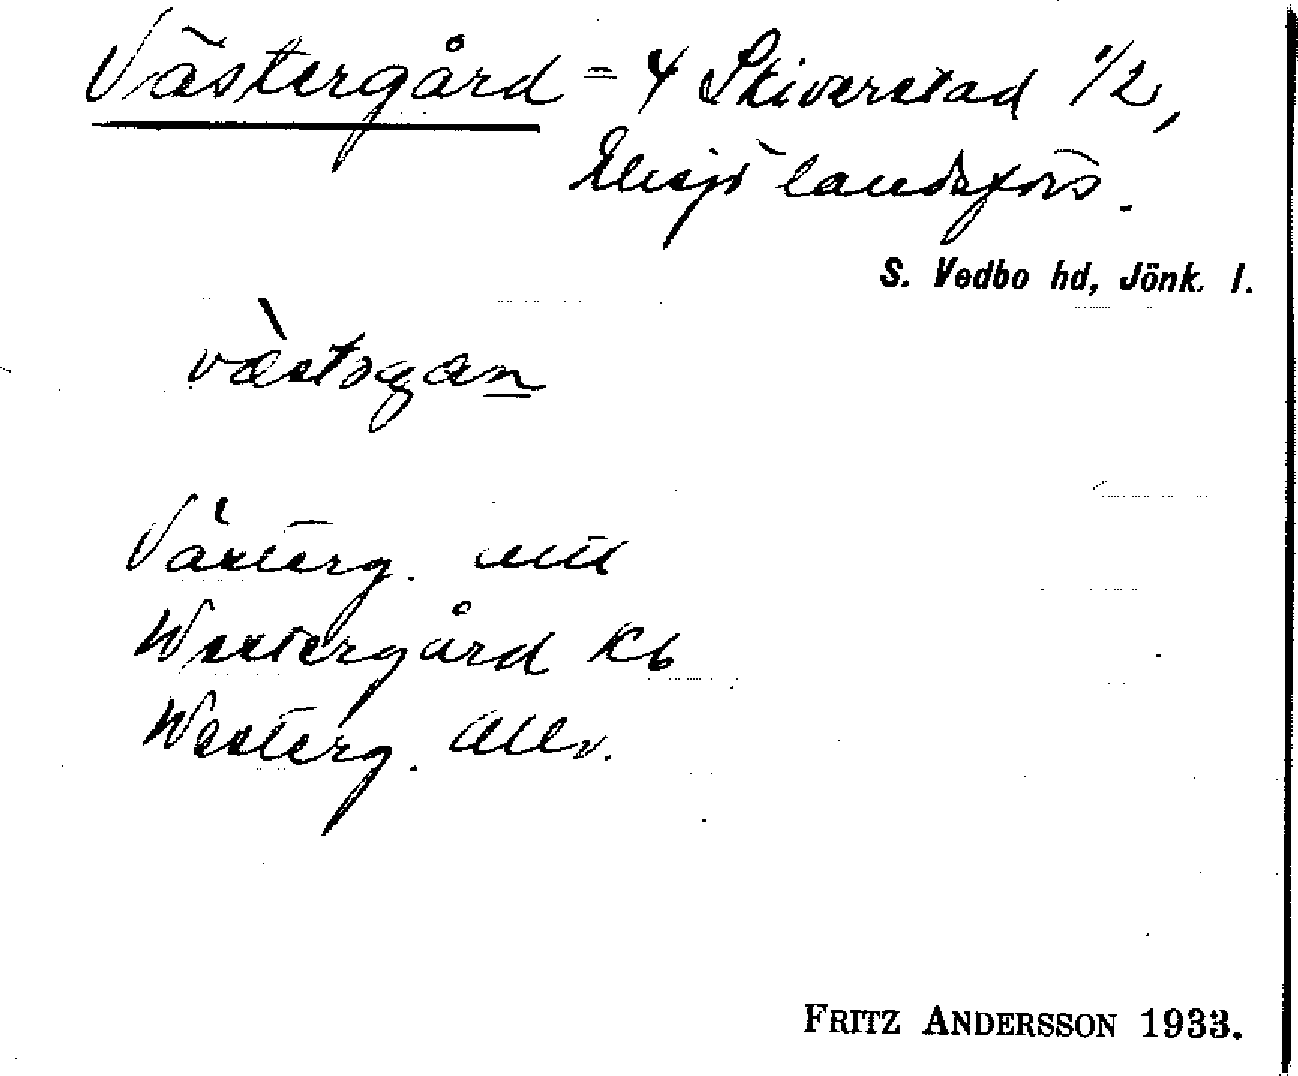 Västergård = 4 Skiverstad 1/2,
Eksjö landsförs.
S. Vedbo hd, Jönk. l.
västəgan
Västerg. uttl
Westergård Kb
Westerg. Allv.
FRITZ ANDERSSON 1933.